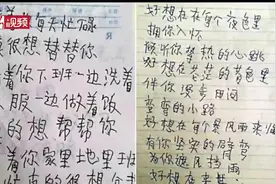 视频
着每天忙碌
很想替替你
着你下班一边洗着
服一边做着饭
的想帮帮你
着你家里地里班
好想在每个夜色里
拥你入怀
倾听你梦热的心跳
好想在
的暮色里
伴你漫步田间
的小路
好想在每个暴风雨来临
有你坚实的臂弯
为你遮风挡雨
好想在